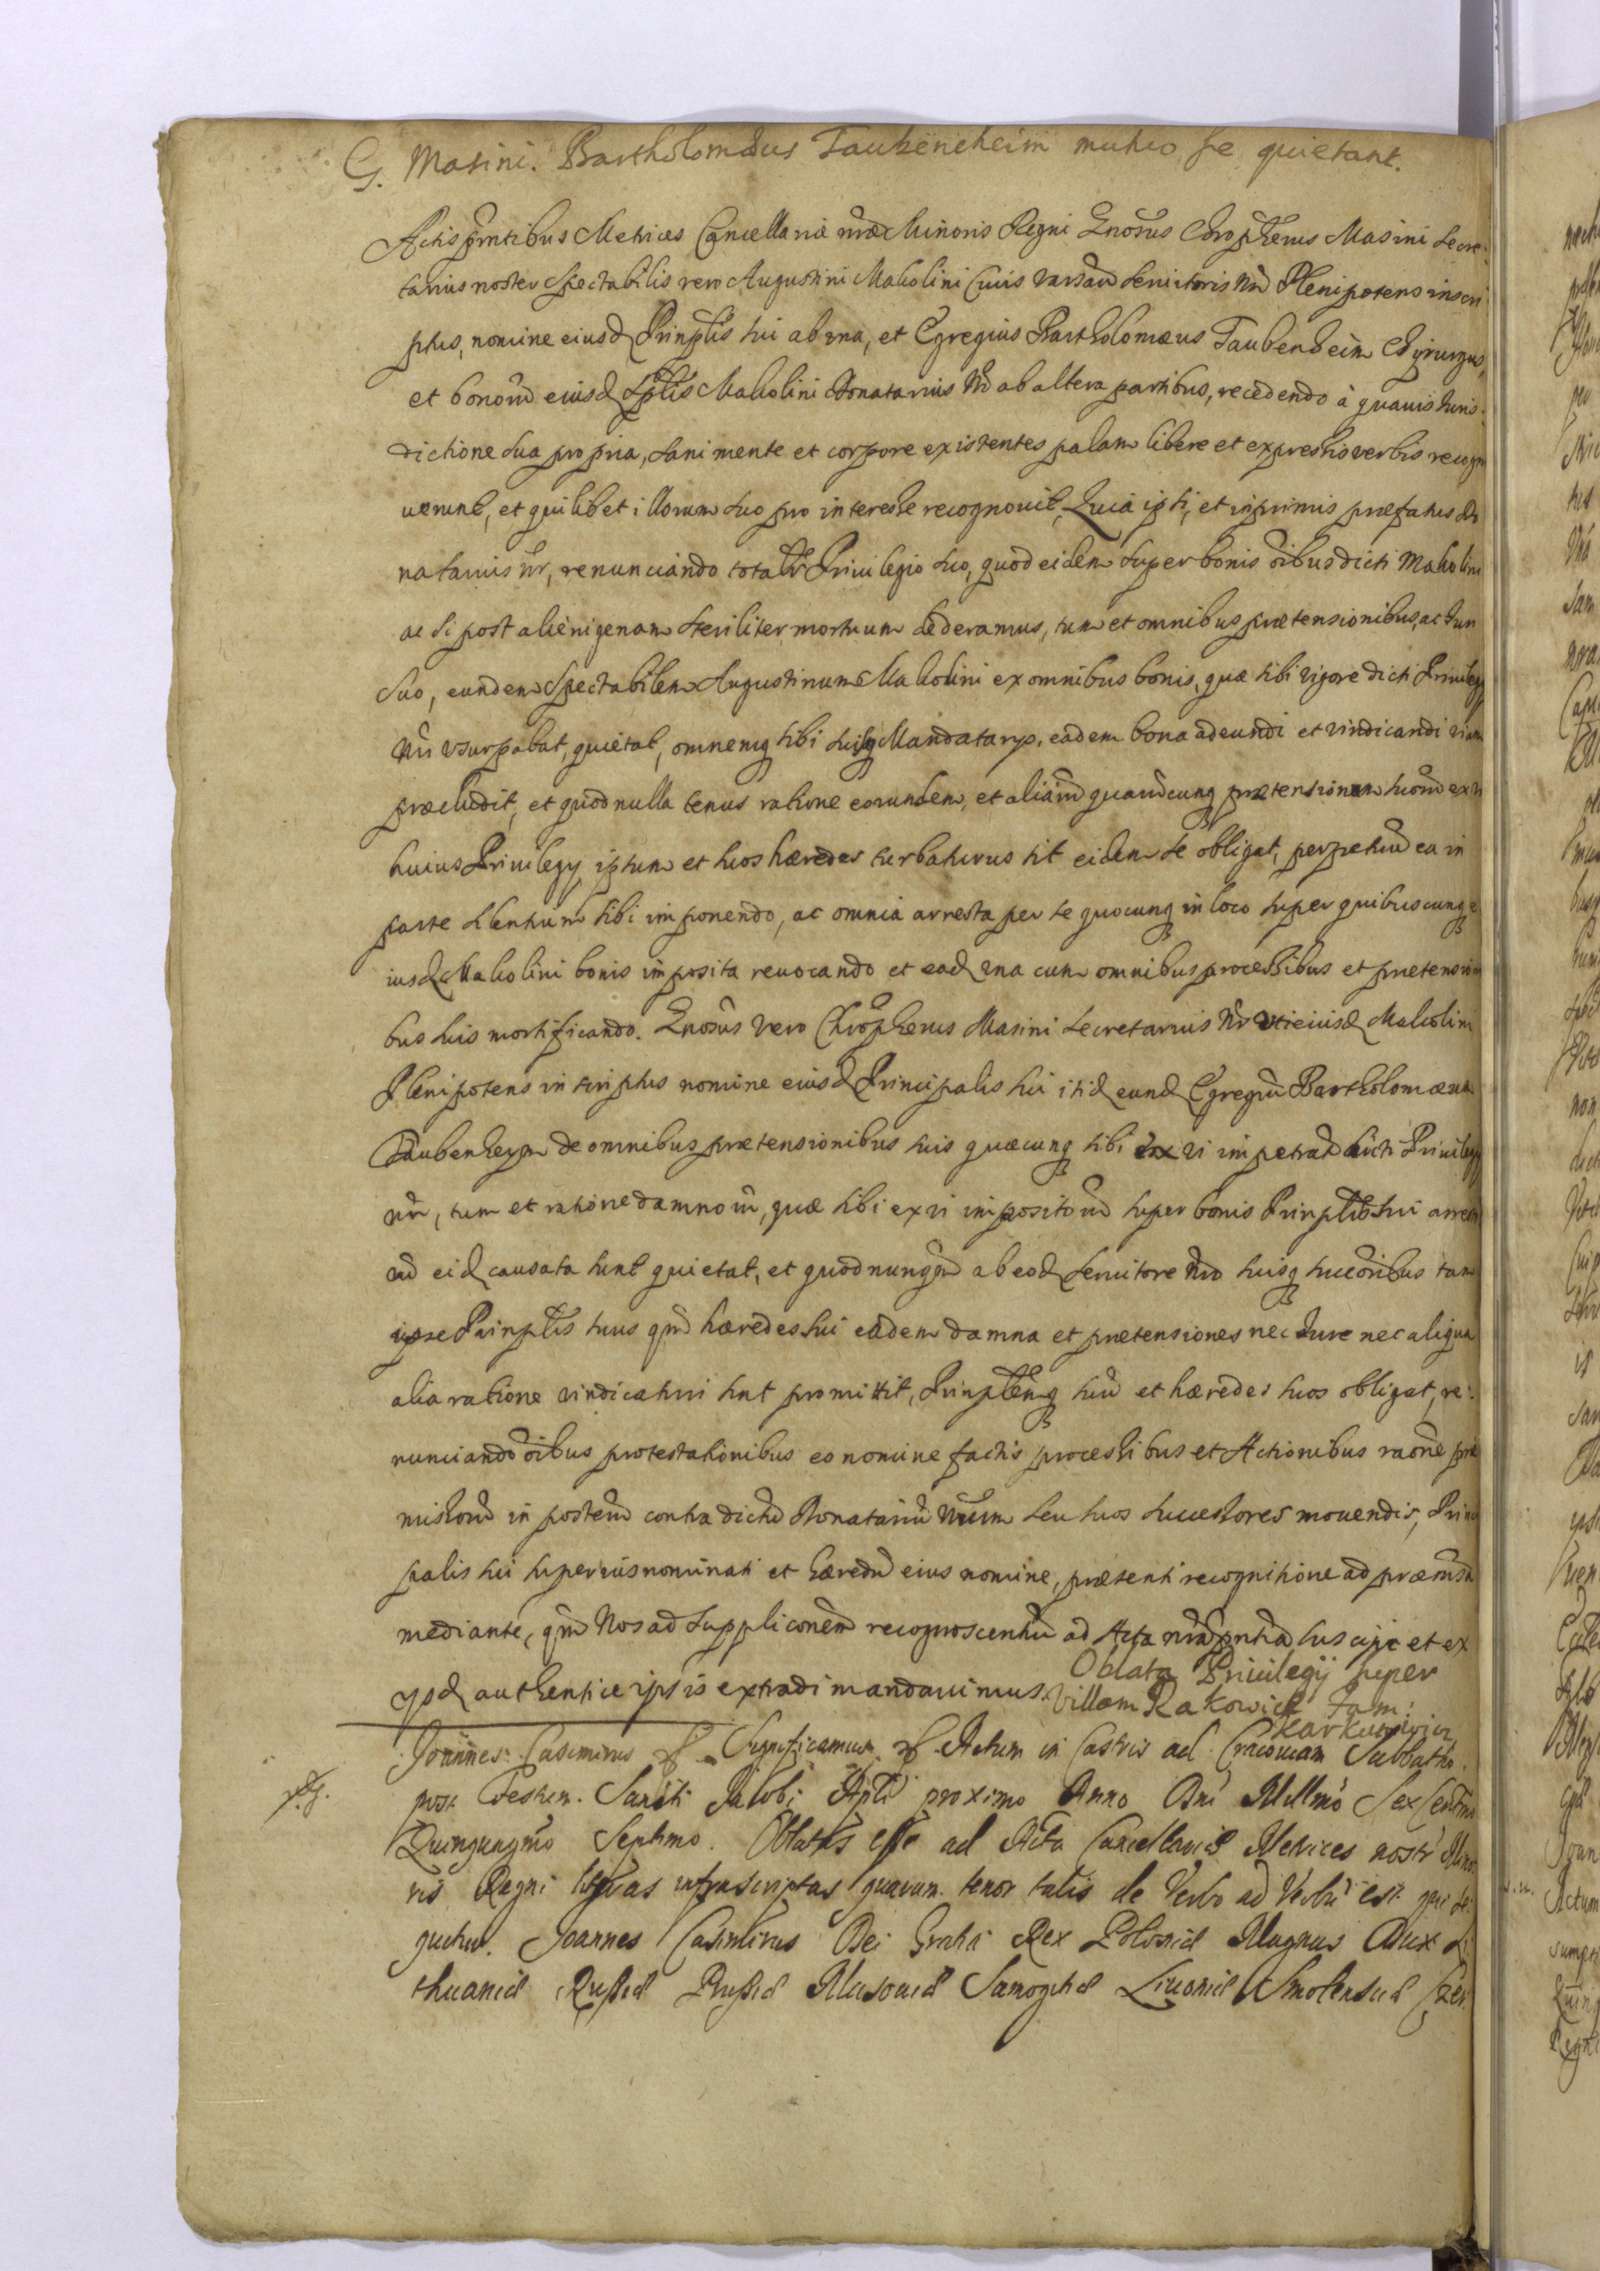 G. Masini. Bartholomæus Taubeneheim mutuo se quietant.
Actis pñtibus Metrices Cancellariæ nræ Minoris Regni Gnosus Chrõpherus Masini Secre-
tarius noster Spectabilis vero Augustini Maliolini Civis Servitoris Nrĩ Plenipotens inscri
ptus, nomine eiusd Prinplis sui ab vna, et Egregius Bartholomæus Taubenheim Chyrurgus,
et bonorũ eiusd Sptlis Maliolini Donatarius Nr ab altera partibus, recedendo à quavis Iuris-
dictione sua propria, sani mente et corpore existentes palam libere et expressis verbis recogn
uerunt, et quilibet illorum suo pro interesse recognouit, Quia ipsi, et inprimis præfatus Do
natarius nr, renunciando totalr Priuilegio suo, quod eidem super bonis oĩbus dicti Maliolini
ac si post alienigenam steriliter mortuum dederamus, tum et omnibus prætensionibus, ac Iuri
suo, eundem Spectabilem Augustinum Maliolini ex omnibus bonis, quæ sibi vigore dicti Priuilegy
Nri vsurpabat, quietat, omnemq sibi suisq Mandatarys, eadem bona adeundi et vindicandi viam
præcludit, et quod nulla tenus ratione eorundem, et aliarũ quarũcunq prætensionum suorũ ex vi
huius Priuilegy, ipsum et suos hæredes turbaturus sit eidem se obligat, perpetuũ ea in
parte silentium sibi imponendo, ac omnia arresta per se quocunq in loco super quibuscunq e
iusd Maliolini bonis imposita reuocando et ead vna cum omnibus processibus et prætensioni
bus suis mortificando. Gnosus vero Chrõpherus Masini Secretarius Nr vti eiusd Maliolini
Plenipotens inscriptus nomine eiusd Principalis sui itid eund Egregiũ Bartholomæum
Taubenheym de omnibus prætensionibus suis quæcunq sibi ex vi impetrati dicti Priuilegy
nri, tum et ratione damnorũ, quæ sibi ex vi impositorũ super bonis Prinplis sui arresto
rũ eid causata sunt quietat, et quod nunqũ ab eod Seruitore Nro suisq succoribus tam
ipse Prinplis suus qũ hæredes sui eadem damna et prætensiones nec Iure nec aliqua
alia ratione vindicaturi sint promittit, Prinplemq suũ et hæredes suos obligat, re-
nunciando oĩbus protestationibus eo nomine factis processibus et Actionibus raõne præ
missorũ in posterũ contra dictũ Donatariũ Nrum seu suos successores mouendis, Princi
palis sui superius nominati et hæredũ eius nomine, præsenti recognitione ad præmissa
mediante, qũ Nos ad supplicõnem recognoscentiũ ad Acta nra pñtia suscipi et ex
ysd authentice ipsis extradi mandauimus.
Oblata Priuilegij super
villam Rakowice fam:
Karkuowicz
Joannes Casimirus Significamus Actum in Castris ad Cracouiam Sabbatho
post Festum Sancti Jacobi Apli proximo Anno Dni Millmo Sex Centmo
Quinquagmo Septimo. Oblatas esse ad Acta Cancellariæ Metrices nostræ Mino
ris Regni literas infrascriptas quarum tenor talis de Verbo ad Verbũ est qui se-
quitur. Joannes Casimirus Dei Gratia Rex Poloniæ Magnus Dux Li
thuaniæ Russiæ Prussiæ Masouiæ Samogitiæ Liuoniæ Smolensciæ Czer